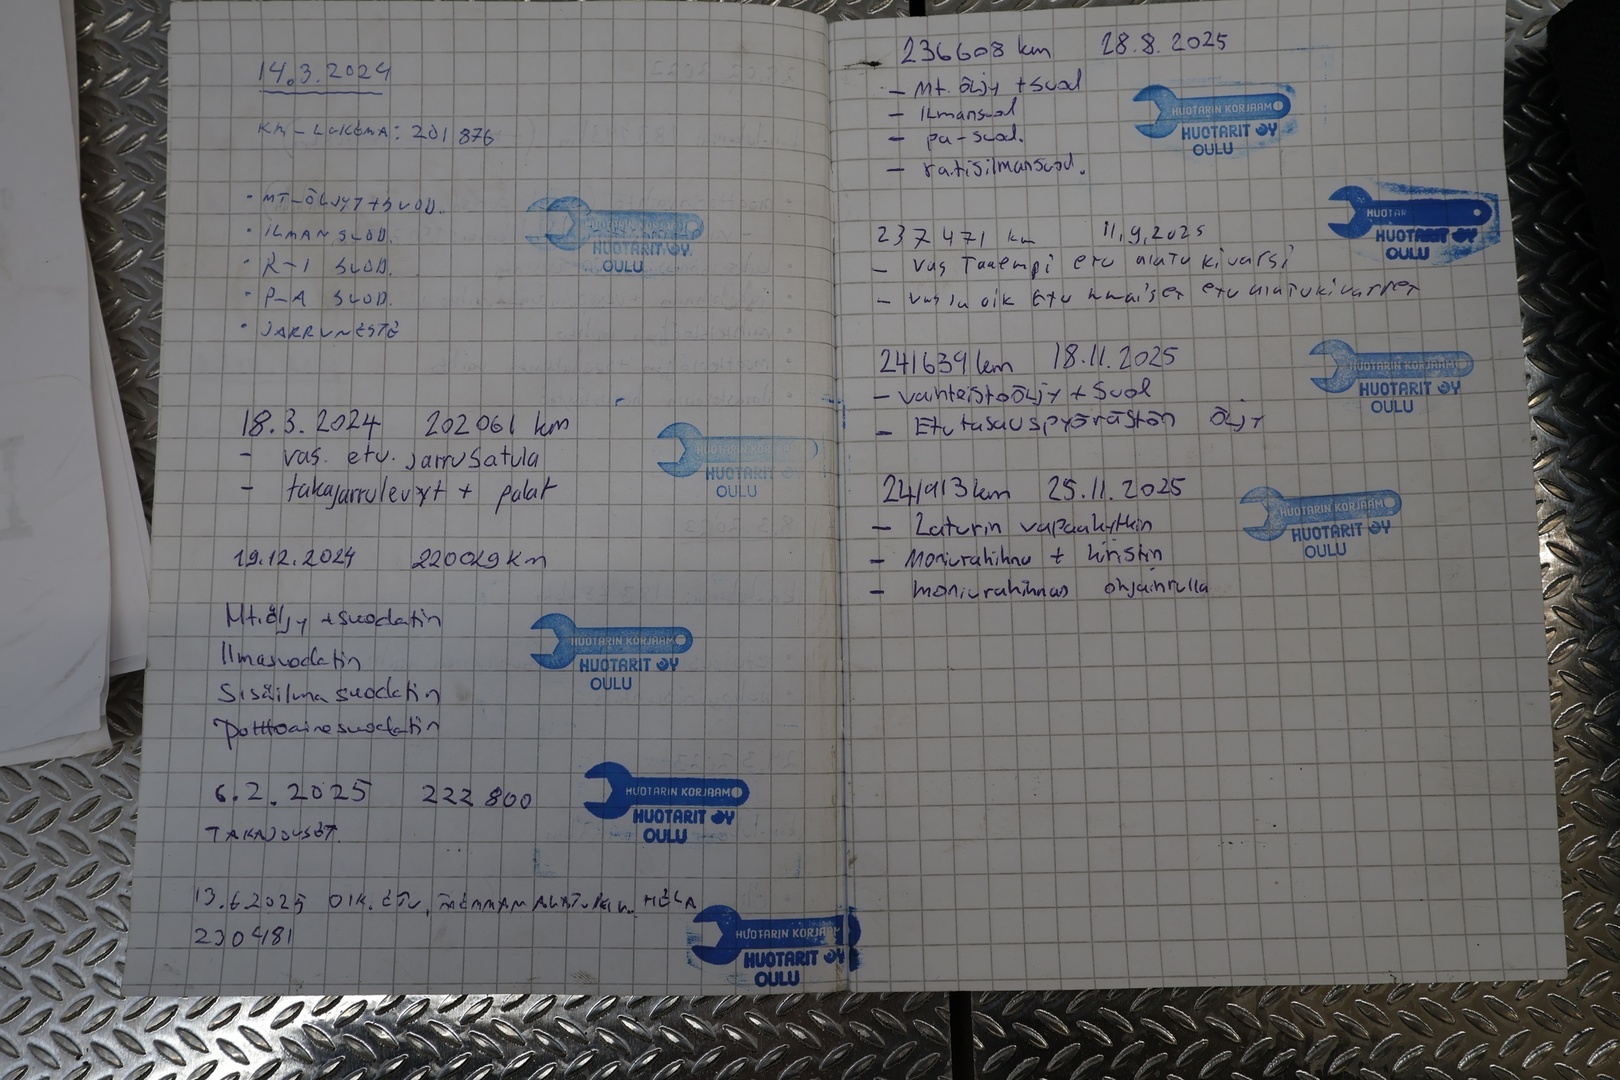 14.3.2024
KM-LUKEMA: 201 876
• MT-ÖLJYT+SUOD.
• ILMANSUOD.
• R-I SUOD.
• P-A SUOD.
• JARRUNESTE
HUOTARIT OY
OULU
18.3.2024 202061 km
- vas. etu. jarrusatula
- takajarrulevyt + palat
HUOTARIN KORJAAMO
HUOTARIT OY
OULU
19.12.2024 220029 km
Mt.öljy + suodatin
Ilmasuodatin
Sisäilma suodatin
Polttoainesuodatin
HUOTARIN KORJAAMO
HUOTARIT OY
OULU
6.2.2025 222 800
TAKAJOUSET.
HUOTARIN KORJAAMO
HUOTARIT OY
OULU
13.6.2025 OIK. ETU. ALATUKIV. HELA
230481
HUOTARIN KORJAAMO
HUOTARIT OY
OULU
236608 km 28.8.2025
- Mt. öljy + suod
- Ilmansuod
- pa-suod.
- raitisilmansuod.
HUOTARIN KORJAAMO
HUOTARIT OY
OULU
237471 km 11.9.2025
- vas Taaempi etu alatukivarsi
- vas ja oik Etummaiset etu alatukivarret
HUOTAR
HUOTARIT OY
OULU
241639 km 18.11.2025
- vaihteistoöljy + suod
- Etutasauspyörästön öljy
HUOTARIN KORJAAMO
HUOTARIT OY
OULU
241913 km 25.11.2025
- Laturin vapaakytkin
- Moniurahihna + kiristin
- moniurahihnan ohjainrulla
HUOTARIN KORJAAMO
HUOTARIT OY
OULU